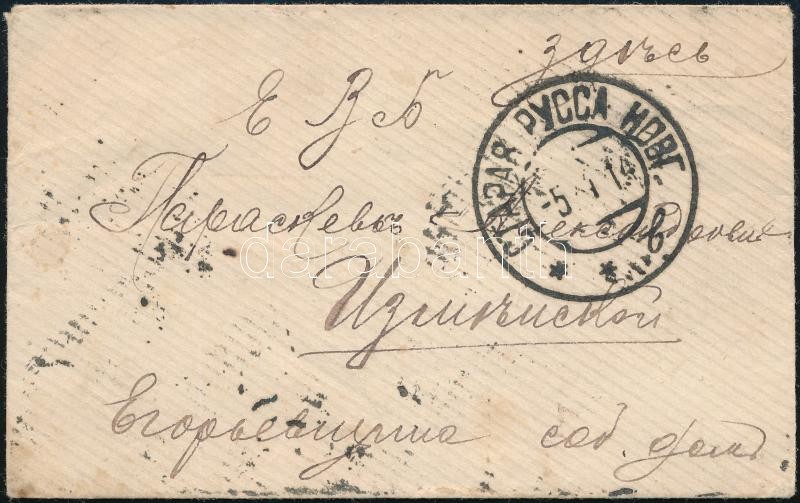 здѣсь
Е В Б
СТАРАЯ РУССА НОВГ.
-5 14
Параскевѣ Александровнѣ
darabanth
Егорьевщина соб домъ